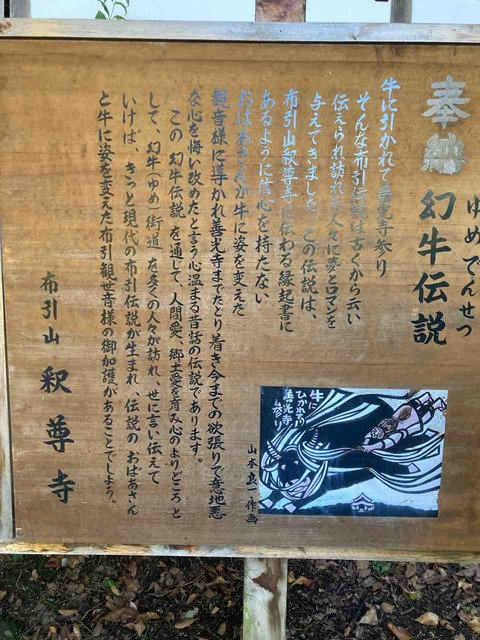 奉納
ゆめ でんせつ
幻牛伝説
牛に引かれて善光寺参り
そんな布引伝説は古くから云い
伝えられ訪れる人々に夢とロマンを
与えてきました。この伝説は、
布引山釈尊寺に伝わる縁起書に
あるように信心を持たない
おばあさんが牛に姿を変えた
観音様に導かれ善光寺までたどり着き今までの欲張りで意地悪
な心を悔い改めたと言う心温まる昔話の伝説であります。
この幻牛伝説を通じて、人間愛、郷土愛を育み心のよりどころと
して、幻牛(ゆめ)街道を多くの人々が訪れ、世に言い伝えて
いけば、きっと現代の布引伝説が生まれ、伝説のおばあさん
と牛に姿を変えた布引観世音様の御加護があることでしょう。
布引山 釈尊寺
牛に
ひかれて
善光寺
参り
山本良一作画